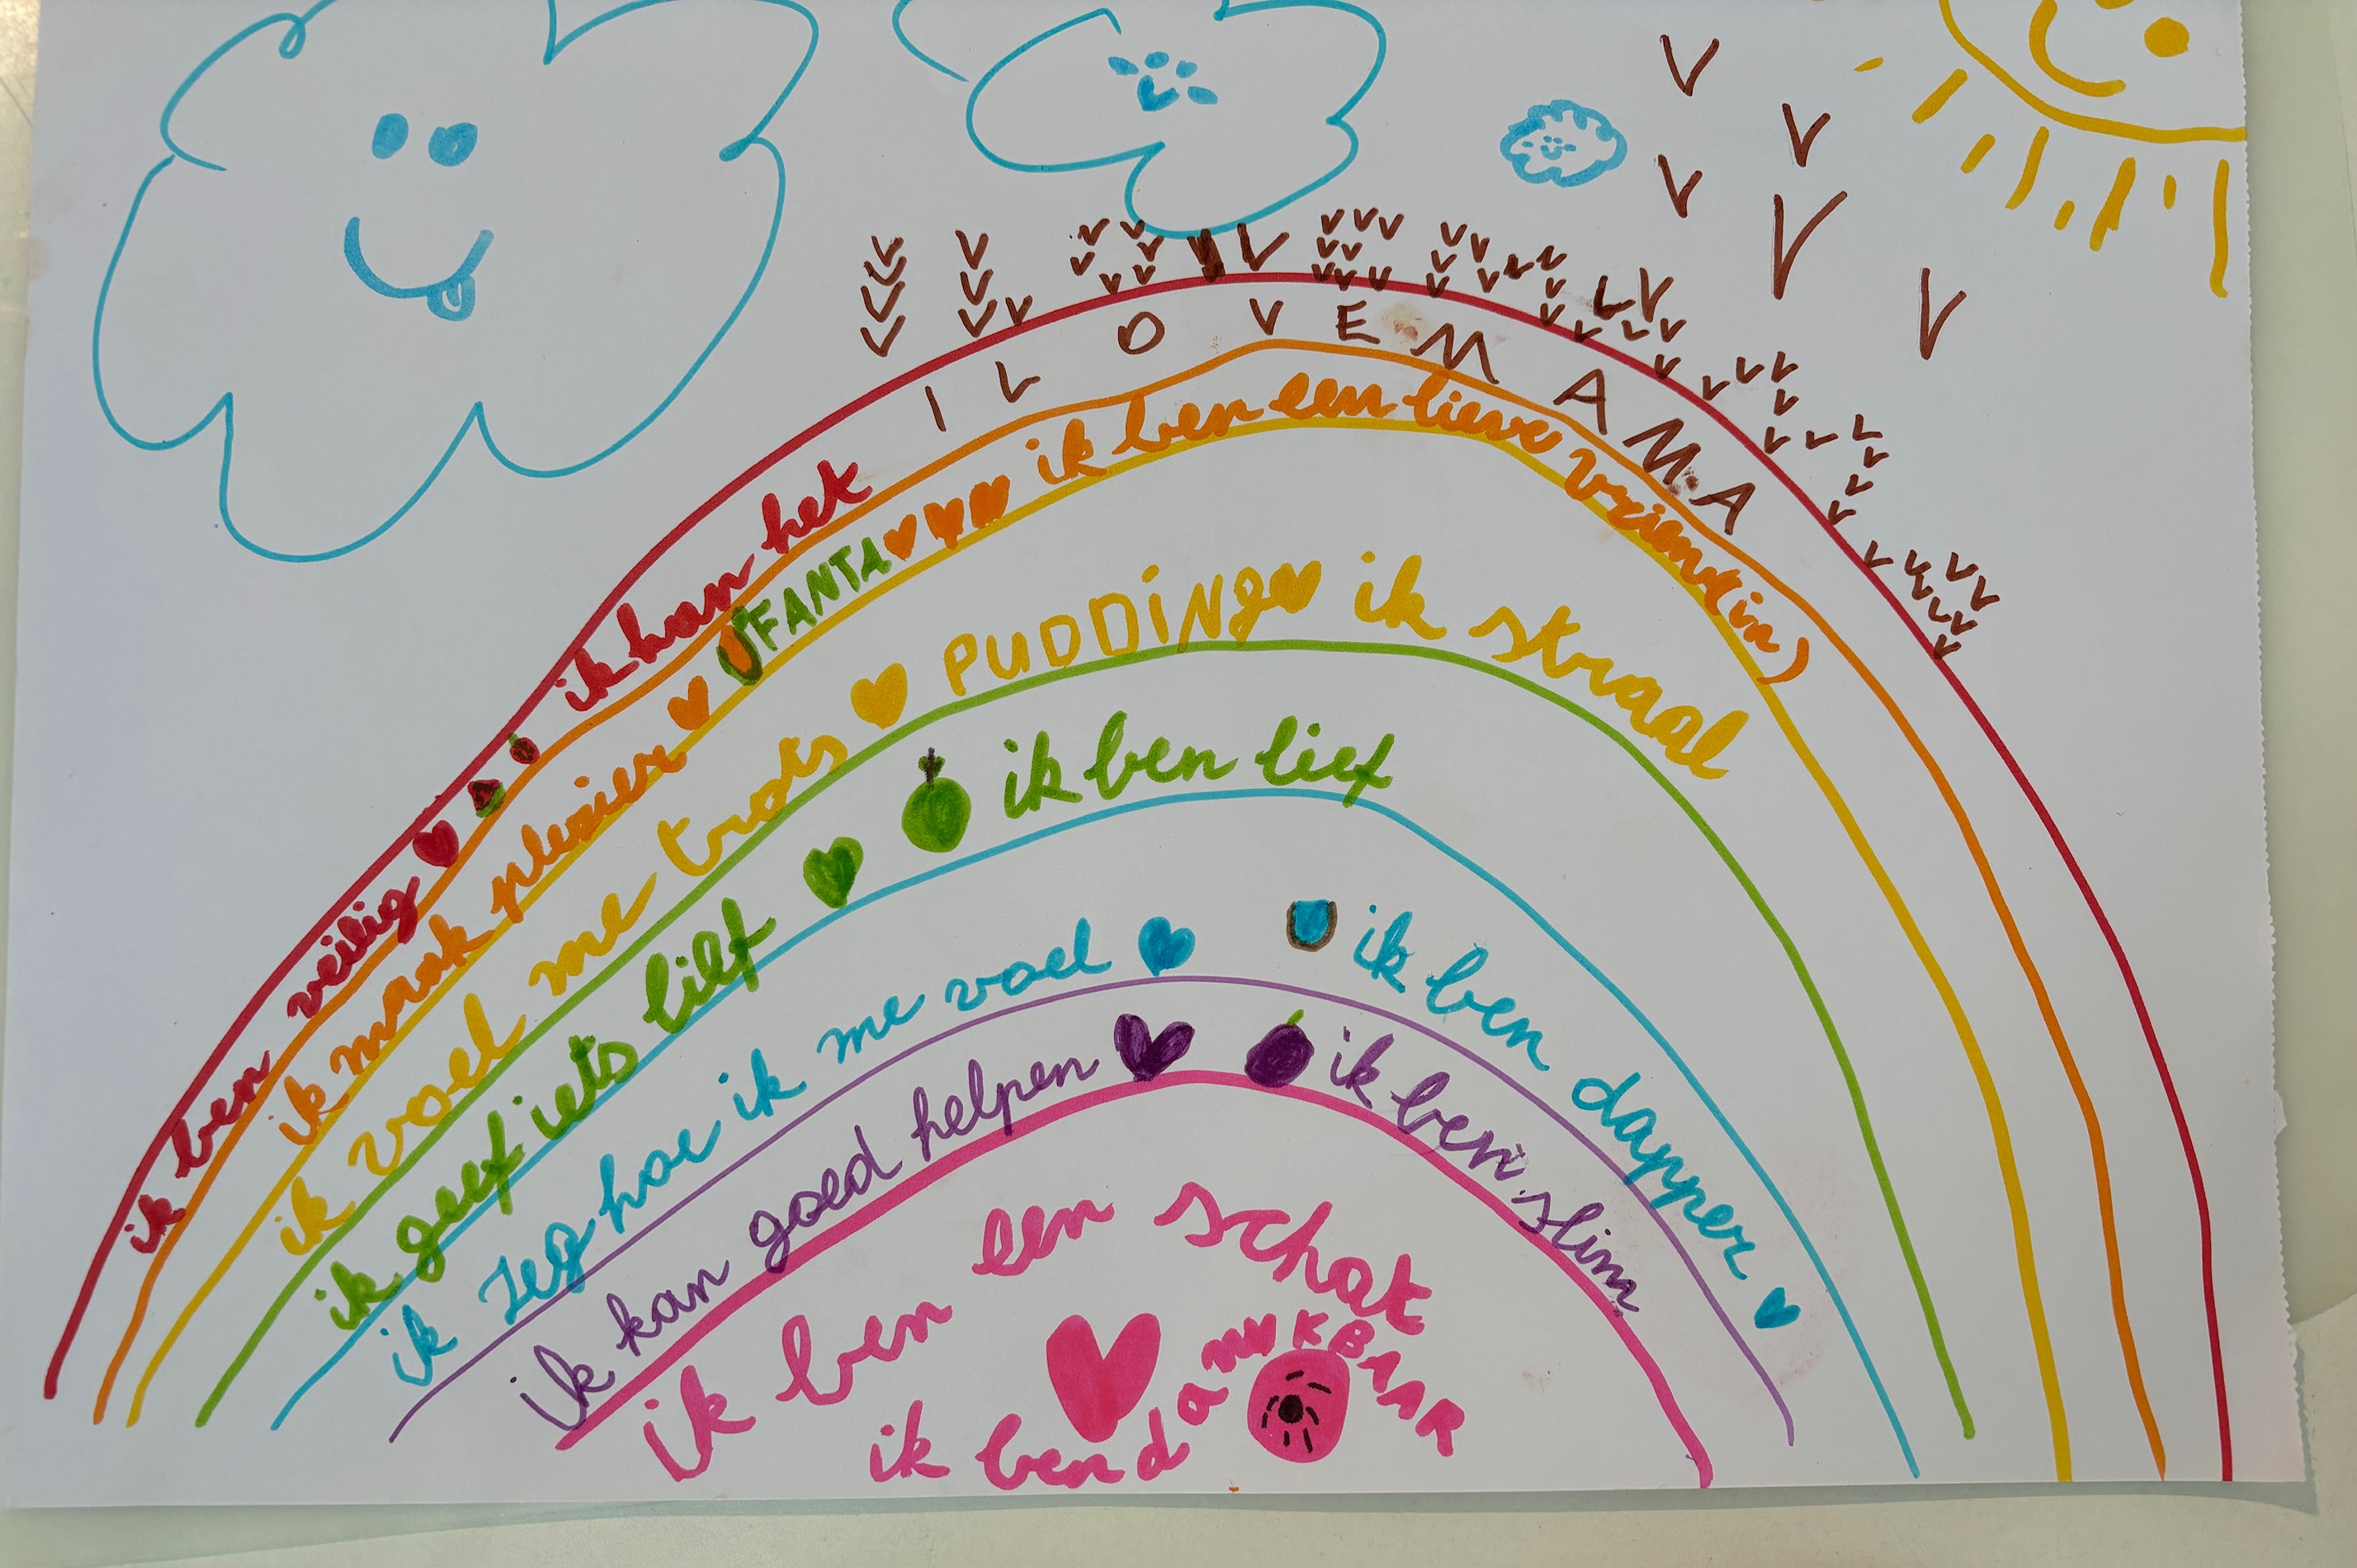 ik ben veilig ik kan het I LOVE MAMA
ik maak plezier FANTA ik ben een lieve vriend(in)
ik voel me trots PUDDiNg ik straal
ik geef iets lief ik ben lief
ik zeg hoe ik me voel ik ben dapper
ik kan goed helpen ik ben slim
ik ben een schat
ik ben daNKBAAR